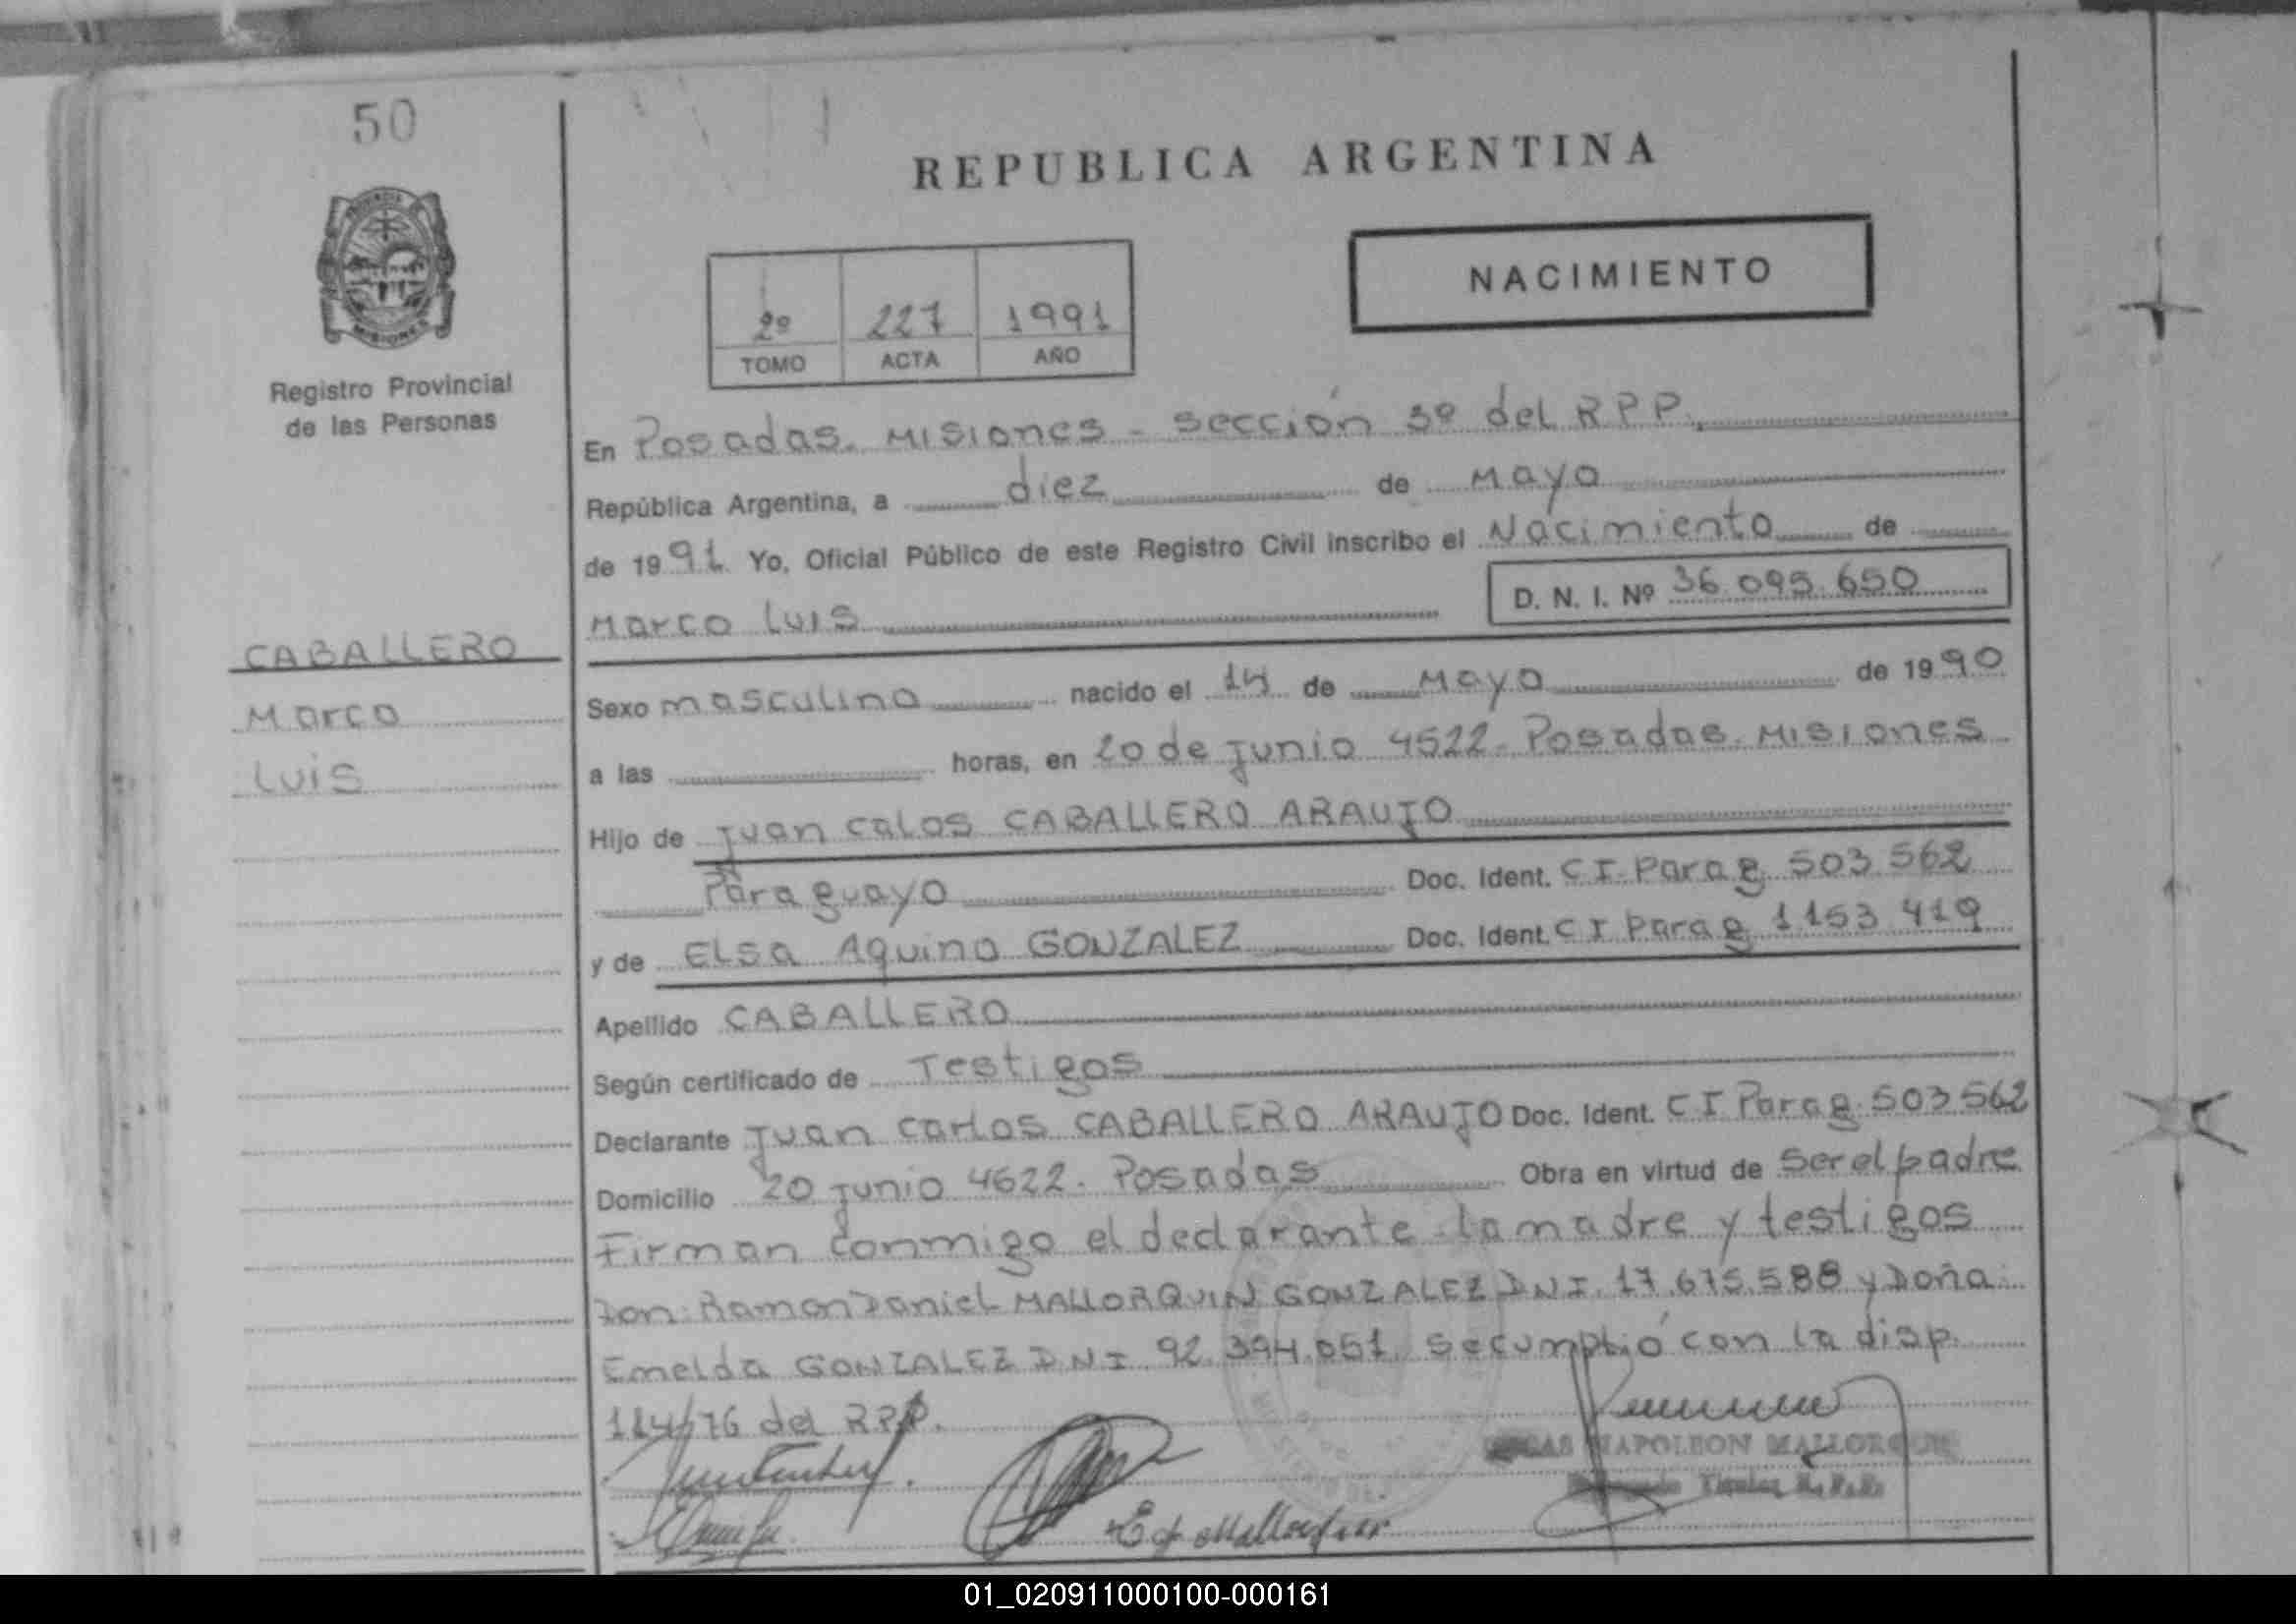 50
REPUBLICA ARGENTINA
NACIMIENTO
2º 227 1991
TOMO ACTA AÑO
MISIONES
Registro Provincial
de las Personas
En Posadas. Misiones - Sección 3º del R P P.
República Argentina, a diez de Mayo
de 1991 Yo, Oficial Público de este Registro Civil inscribo el Nacimiento de
Marco Luis D. N. I. Nº 36.095.650
CABALLERO
Marco
Luis
Sexo masculino nacido el 14 de Mayo de 1990
a las horas, en 20 de Junio 4522 - Posadas. Misiones
Hijo de Juan Calos CABALLERO ARAUJO
Paraguayo Doc. Ident. C I - Parag 503 562
y de Elsa Aquino GONZALEZ Doc. Ident. C I Parag 1153 419
Apellido CABALLERO
Según certificado de Testigos
Declarante Juan Carlos CABALLERO ARAUJO Doc. Ident. C I Parag. 503 562
Domicilio 20 Junio 4622. Posadas Obra en virtud de ser el padre
Firman conmigo el declarante - la madre y testigos
Don: Ramon Daniel MALLORQUIN GONZALEZ DNI. 17.675.588 y Doña
Emelda GONZALEZ DNI 92.394.051. Se cumplió con la disp.
114/76 del RPP.
NAPOLEON MALLORQUIN
Titular R.P.P.
01_020911000100-000161